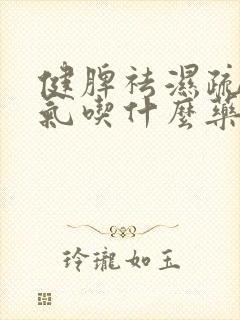 健脾祛濕疏
氣喫什麼藥
玲瓏如玉